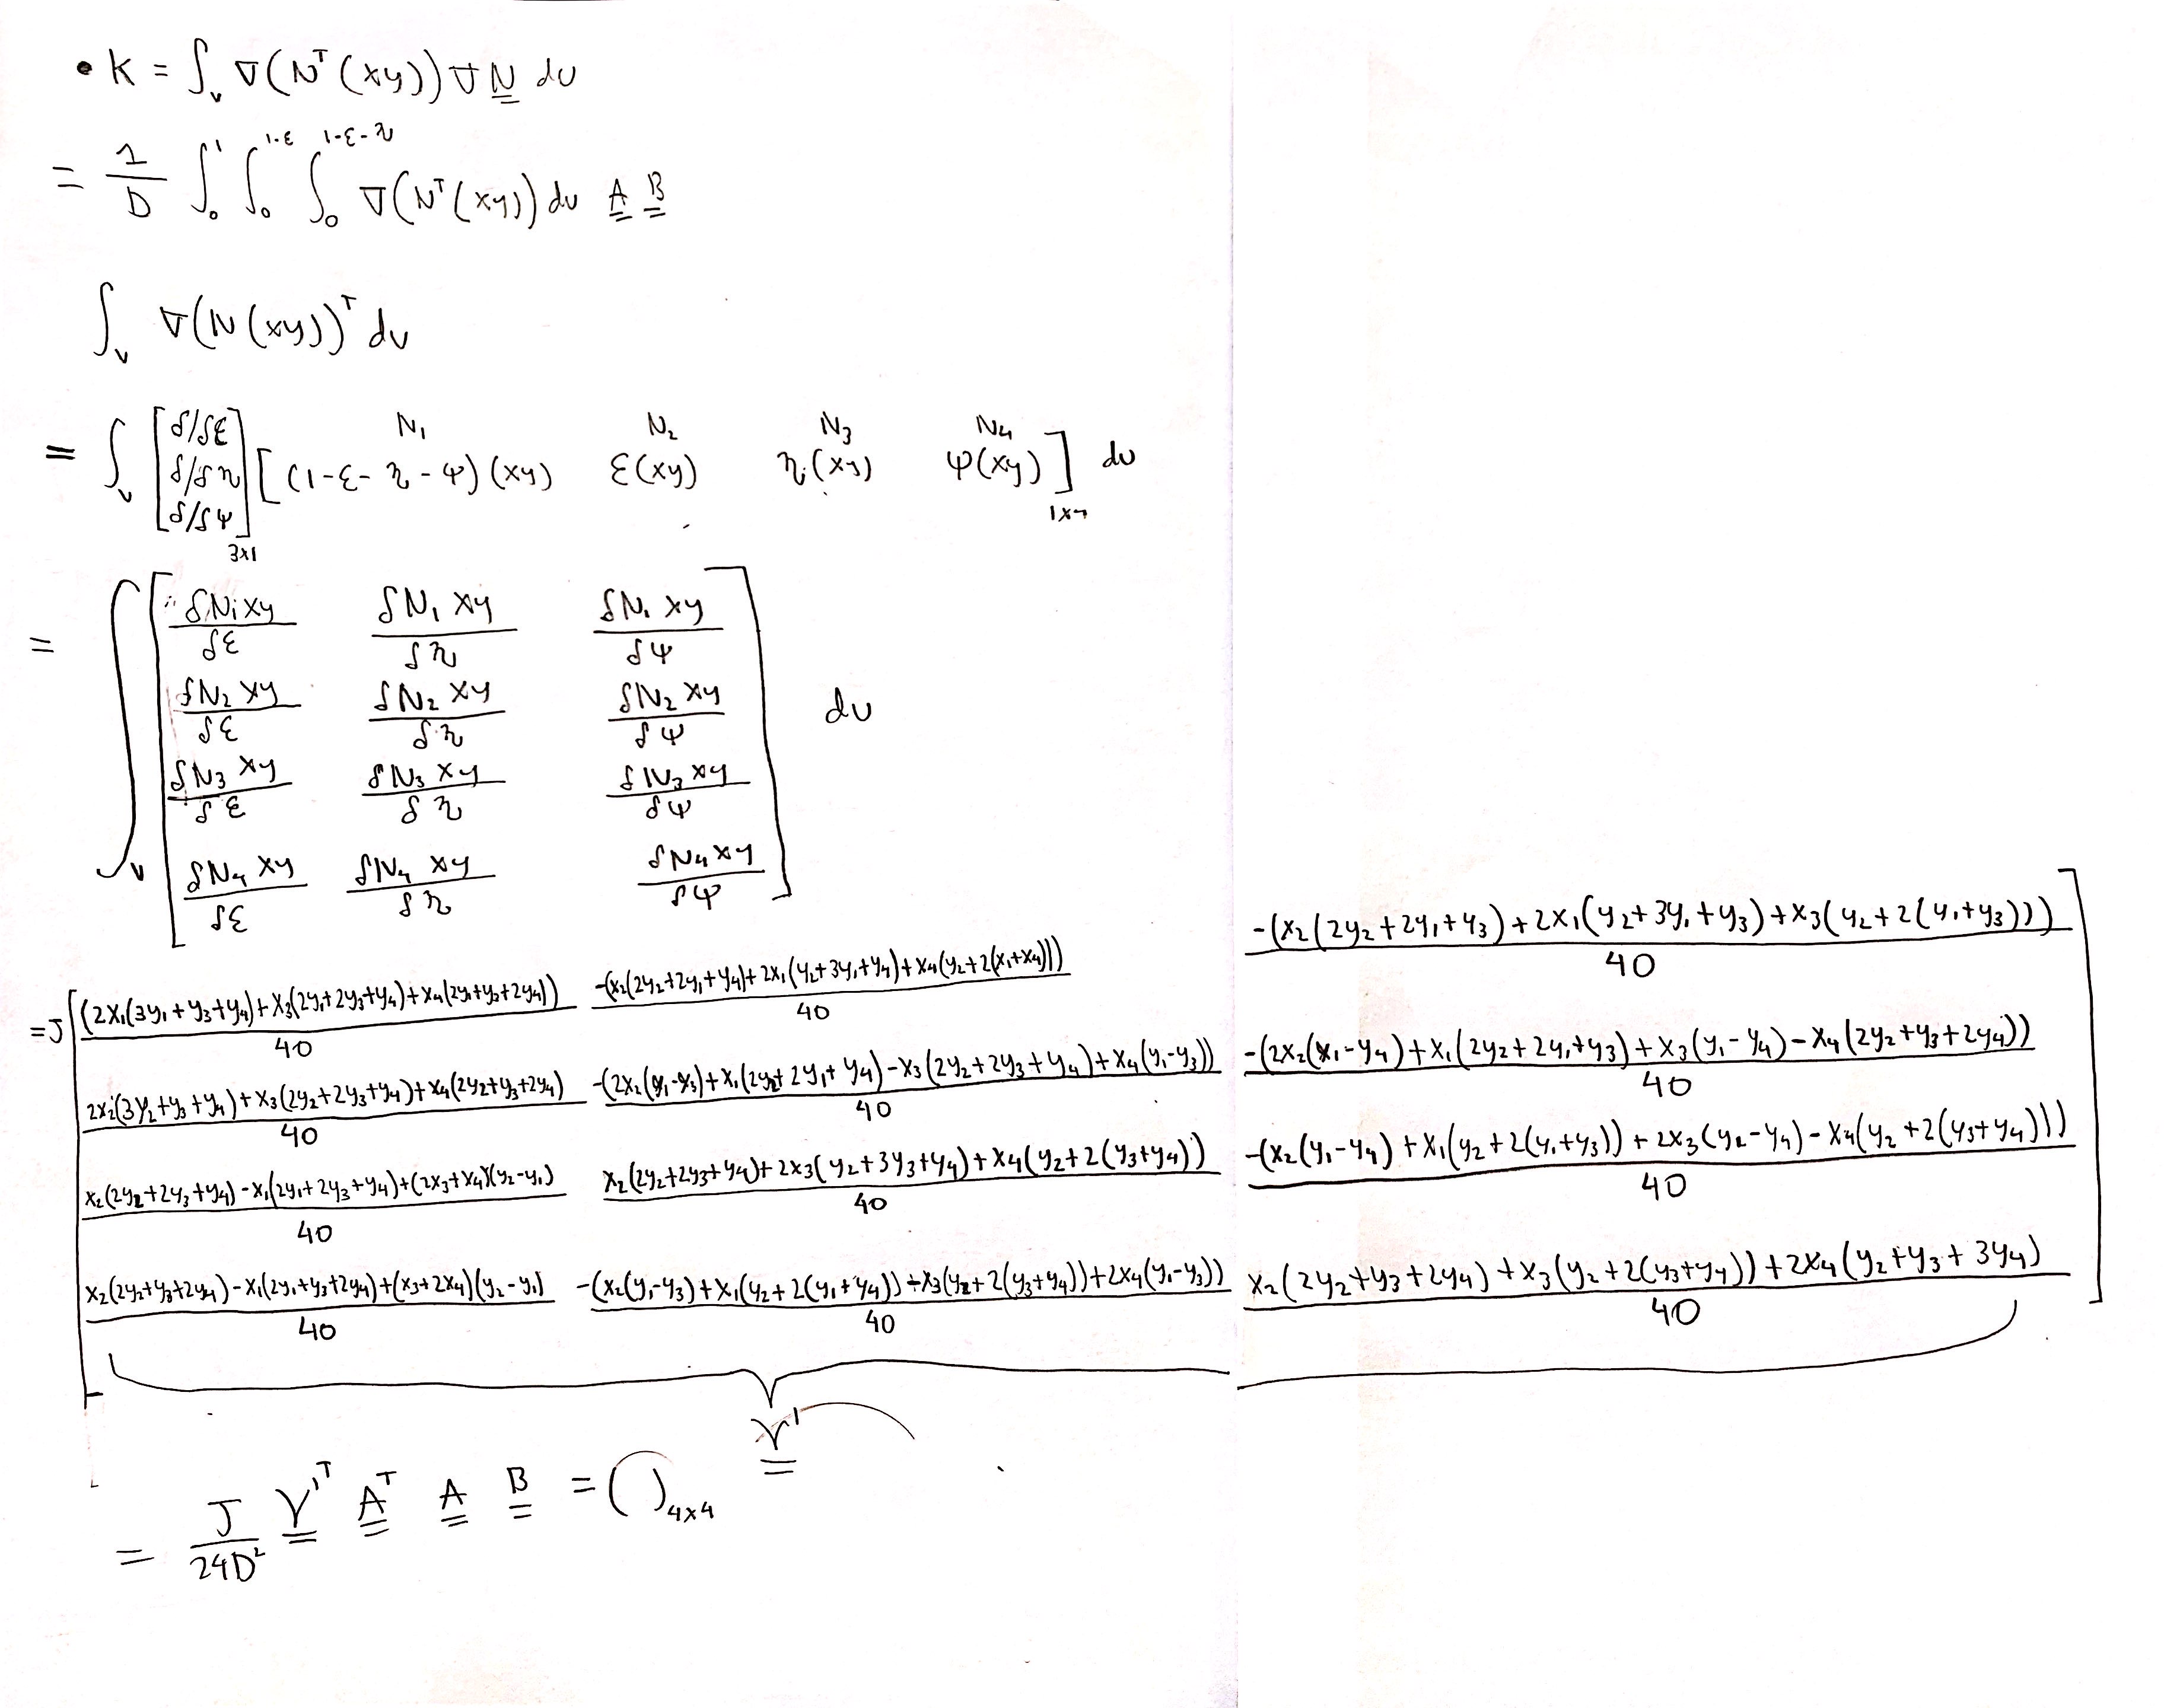 • K = ∫_v ∇(N^T (xy)) ∇ N dv
= 1/D ∫_0^1 ∫_0^{1-ε} ∫_0^{1-ε-η} ∇(N^T (xy)) dv A B
∫_v ∇(N (xy))^T dv
= ∫_v [δ/δε δ/δη δ/δψ]_{3x1} [ N_1 (1-ε-η-ψ)(xy) N_2 ε(xy) N_3 η(xy) N_4 ψ(xy) ]_{1x4} dv
= ∫_v [ δN_1 xy/δε δN_1 xy/δη δN_1 xy/δψ
δN_2 xy/δε δN_2 xy/δη δN_2 xy/δψ
δN_3 xy/δε δN_3 xy/δη δN_3 xy/δψ
δN_4 xy/δε δN_4 xy/δη δN_4 xy/δψ ] dv
=J [ (2x_1(3y_1+y_3+y_4)+x_3(2y_1+2y_3+y_4)+x_4(2y_1+y_3+2y_4))/40 -(x_2(2y_2+2y_1+y_4)+2x_1(y_2+3y_1+y_4)+x_4(y_2+2(x_1+x_4)))/40 -(x_2(2y_2+2y_1+y_3)+2x_1(y_2+3y_1+y_3)+x_3(y_2+2(y_1+y_3)))/40
2x_2(3y_2+y_3+y_4)+x_3(2y_2+2y_3+y_4)+x_4(2y_2+y_3+2y_4)/40 -(2x_2(y_1-y_3)+x_1(2y_2+2y_1+y_4)-x_3(2y_2+2y_3+y_4)+x_4(y_1-y_3))/40 -(2x_2(x_1-y_4)+x_1(2y_2+2y_1+y_3)+x_3(y_1-y_4)-x_4(2y_2+y_3+2y_4))/40
x_2(2y_2+2y_3+y_4)-x_1(2y_1+2y_3+y_4)+(2x_3+x_4)(y_2-y_1)/40 x_2(2y_2+2y_3+y_4)+2x_3(y_2+3y_3+y_4)+x_4(y_2+2(y_3+y_4))/40 -(x_2(y_1-y_4)+x_1(y_2+2(y_1+y_3))+2x_3(y_2-y_4)-x_4(y_2+2(y_3+y_4)))/40
x_2(2y_2+y_3+2y_4)-x_1(2y_1+y_3+2y_4)+(x_3+2x_4)(y_2-y_1)/40 -(x_2(y_1-y_3)+x_1(y_2+2(y_1+y_4))-x_3(y_2+2(y_3+y_4))+2x_4(y_1-y_3))/40 x_2(2y_2+y_3+2y_4)+x_3(y_2+2(y_3+y_4))+2x_4(y_2+y_3+3y_4)/40 ]
γ'
= J/24D^2 γ'^T A^T A B = ( )_{4x4}